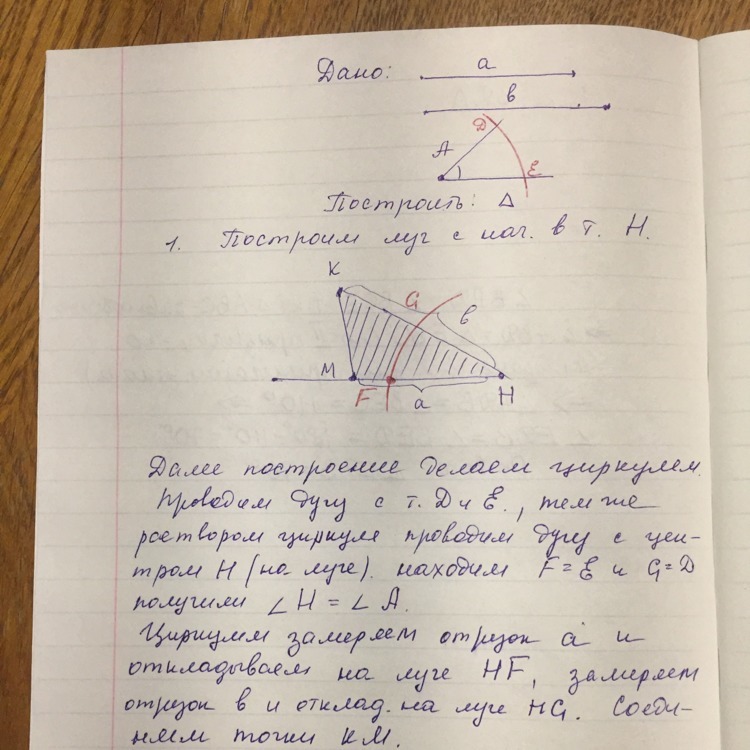 Дано: a
в
D
A
E
Построить: Δ
1. Построим луч с нач. в т. H.
K
G
в
M
F
a
H
Далее построение делаем циркулем.
Проводим дугу с т. D и E., тем же
раствором циркуля проводим дугу с цен-
тром H (на луче). находим F = E и G = D
получили ∠H = ∠A.
Циркулем замеряем отрезок a и
откладываем на луче HF, замеряем
отрезок в и отклад. на луче HG. Соеди-
няем точки KM.